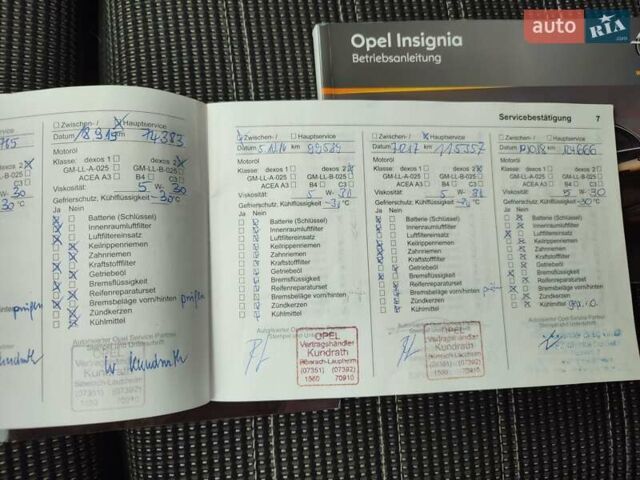 auto RIA .com
Opel Insignia
Betriebsanleitung
Servicebestätigung 7
Zwischen- / Hauptservice
Datum km 14383
Motoröl
Klasse: dexos 1 dexos 2
GM-LL-A-025 GM-LL-B-025
ACEA A3 B4 C3
Viskosität: 5 W- 30
Gefrierschutz, Kühlflüssigkeit -30 °C
Ja Nein
Batterie (Schlüssel)
Innenraumluftfilter
Luftfiltereinsatz
Keilrippenriemen
Zahnriemen
Kraftstofffilter
Getriebeöl
Bremsflüssigkeit
Reifenreparaturset
Bremsbeläge vorn/hinten prüfen
Zündkerzen
Kühlmittel
Autorisierter Opel Service Partner
W. Kundrath
Zwischen- / Hauptservice
Datum km 99589
Motoröl
Klasse: dexos 1 dexos 2
GM-LL-A-025 GM-LL-B-025
ACEA A3 B4 C3
Viskosität: 5 W-
Gefrierschutz, Kühlflüssigkeit °C
Ja Nein
Batterie (Schlüssel)
Innenraumluftfilter
Luftfiltereinsatz
Keilrippenriemen
Zahnriemen
Kraftstofffilter
Getriebeöl
Bremsflüssigkeit
Reifenreparaturset
Bremsbeläge vorn/hinten
Zündkerzen
Kühlmittel
Autorisierter Opel Service Partner
Stempel und Unterschrift
OPEL
Vertragshändler
Kundrath
Biberach-Laupheim
(07351) (07392)
1560 70910
Zwischen- / Hauptservice
Datum km 115357
Motoröl
Klasse: dexos 1 dexos 2
GM-LL-A-025 GM-LL-B-025
ACEA A3 B4 C3
Viskosität: 5 W-
Gefrierschutz, Kühlflüssigkeit °C
Ja Nein
Batterie (Schlüssel)
Innenraumluftfilter
Luftfiltereinsatz
Keilrippenriemen
Zahnriemen
Kraftstofffilter
Getriebeöl
Bremsflüssigkeit
Reifenreparaturset
Bremsbeläge vorn/hinten
Zündkerzen
Kühlmittel
Autorisierter Opel Service Partner
OPEL
Vertragshändler
Kundrath
Biberach-Laupheim
(07351) (07392)
1560 70910
Zwischen- / Hauptservice
Datum km
Motoröl
Klasse: dexos 1 dexos 2
GM-LL-A-025 GM-LL-B-025
ACEA A3 B4 C3
Viskosität: 5 W- 30
Gefrierschutz, Kühlflüssigkeit -30 °C
Ja Nein
Batterie (Schlüssel)
Innenraumluftfilter
Luftfiltereinsatz
Keilrippenriemen
Zahnriemen
Kraftstofffilter
Getriebeöl
Bremsflüssigkeit
Reifenreparaturset
Bremsbeläge vorn/hinten
Zündkerzen
Kühlmittel
Autorisierter Opel Service Partner
Stempel und Unterschrift